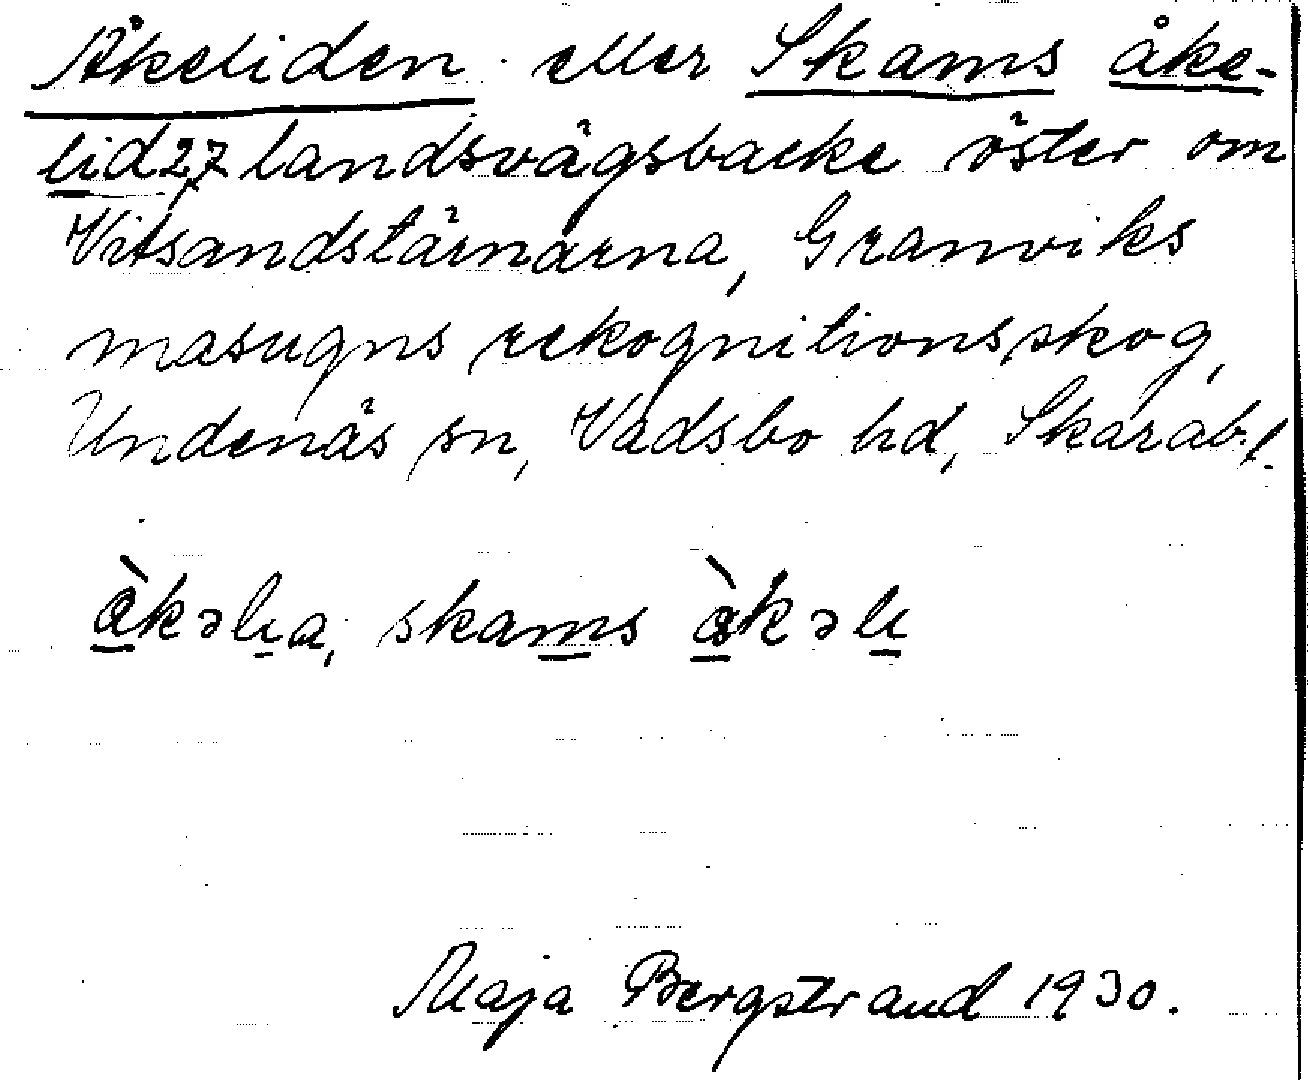 Åkeliden eller Skams åke-
lid 27 landsvägsbacke öster om
Vitsandstärnarna, Granviks
masugns rekognitionsskog,
Undenäs sn, Vadsbo hd, Skarab. l.
skams
Maja Bergstrand 1930.